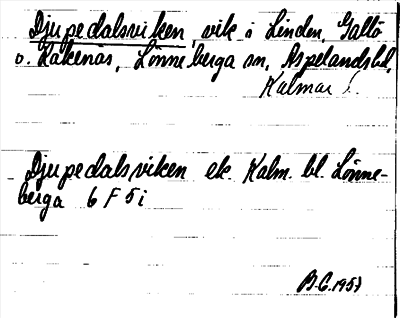 Djupedalsviken, vik i Linden, Gallö
o. Lakenäs, Lönneberga sn, Aspelands hd,
Kalmar l.
Djupedalsviken ek. Kalm. bl. Lönne-
berga 6 F 5 i
B.G. 1957